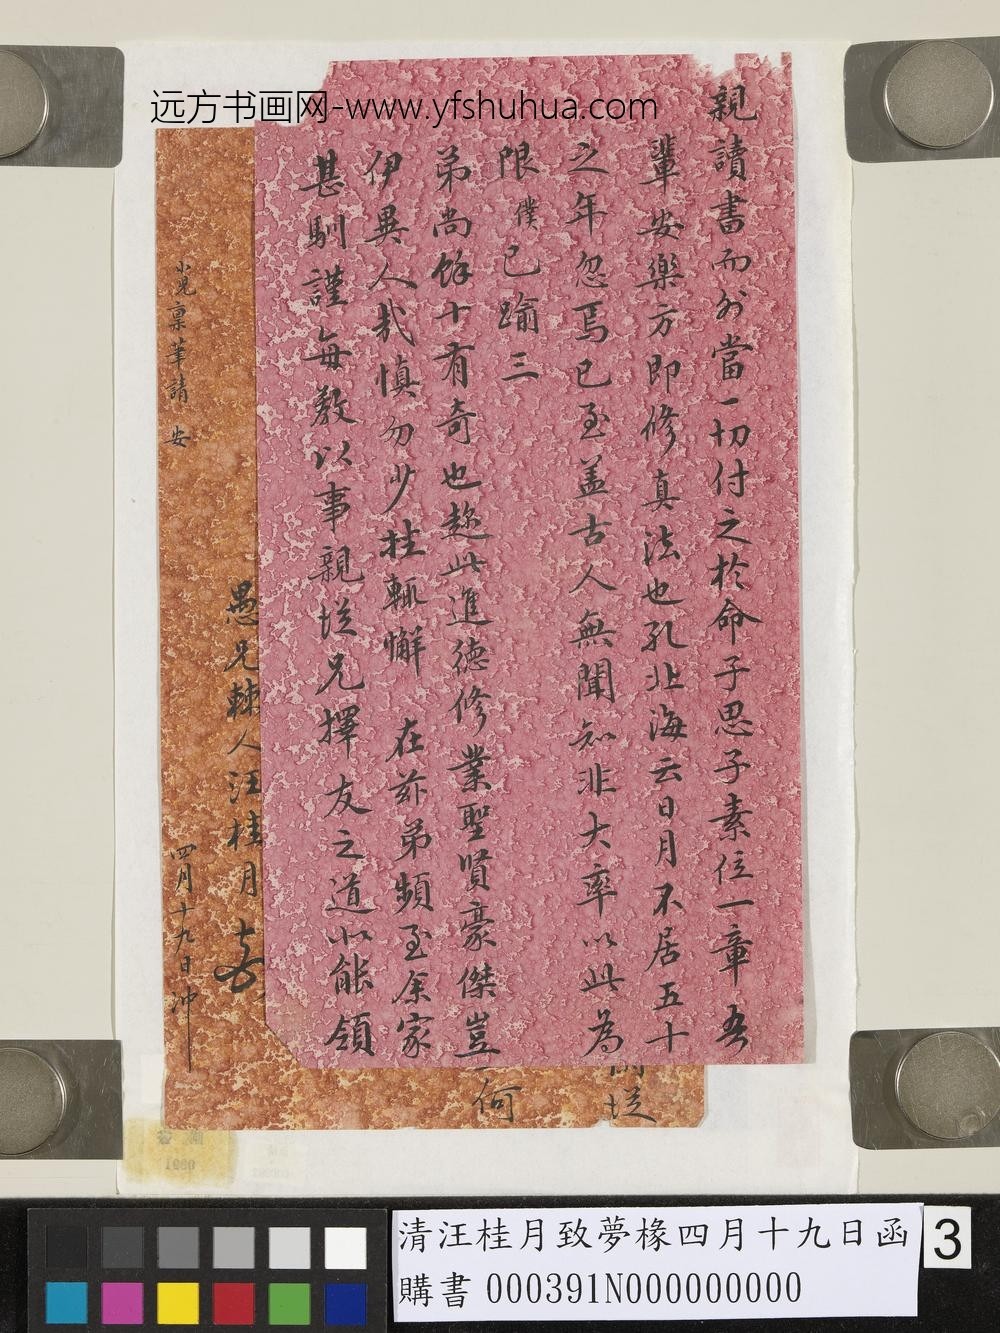 远方书画网-www.yfshuhua.com
親讀書而外當一切付之於命子思子素位一章吾
輩安樂方即修真法也孔北海云日月不居五十
之年忽焉已至蓋古人無聞知非大率以此為
限僕已踰三
弟尚餘十有奇也趂此進德修業聖賢豪傑豈
伊異人哉慎勿少挂輒懈 在茲弟頻至余家
甚馴謹每教以事親從兄擇友之道似能領
從
何
愚兄棘人汪桂月
小兒稟筆請 安
四月十九日沖
清汪桂月致夢椽四月十九日函
購書 000391N000000000
3